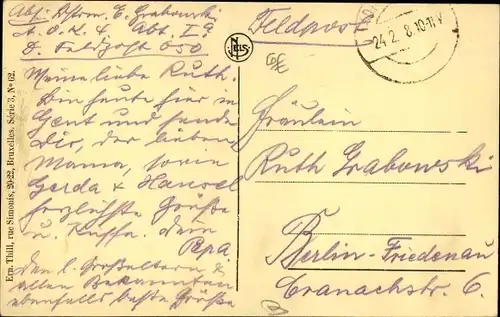 Abs: Dstrm. E. Grabowski
A.O.K. 4. Abt. Ia.
D. Feldpost 650
Meine liebe Ruth.
Bin heute hier in
Gent und sende
Dir, der lieben
Mama, sowie
Gerda & Hansel
herzlichste Grüße
u. Küsse. Dein
Papa.
Den l. Großeltern &
allen Bekannten
ebenfalls beste Grüße
Ern. Thill, rue Simonis, 20-22, Bruxelles. Série 3, No 62.
NELS
Feldpost
24.2 8.10-11V
Fräulein
Ruth Grabowski
Berlin-Friedenau
Cranachstr. 6.